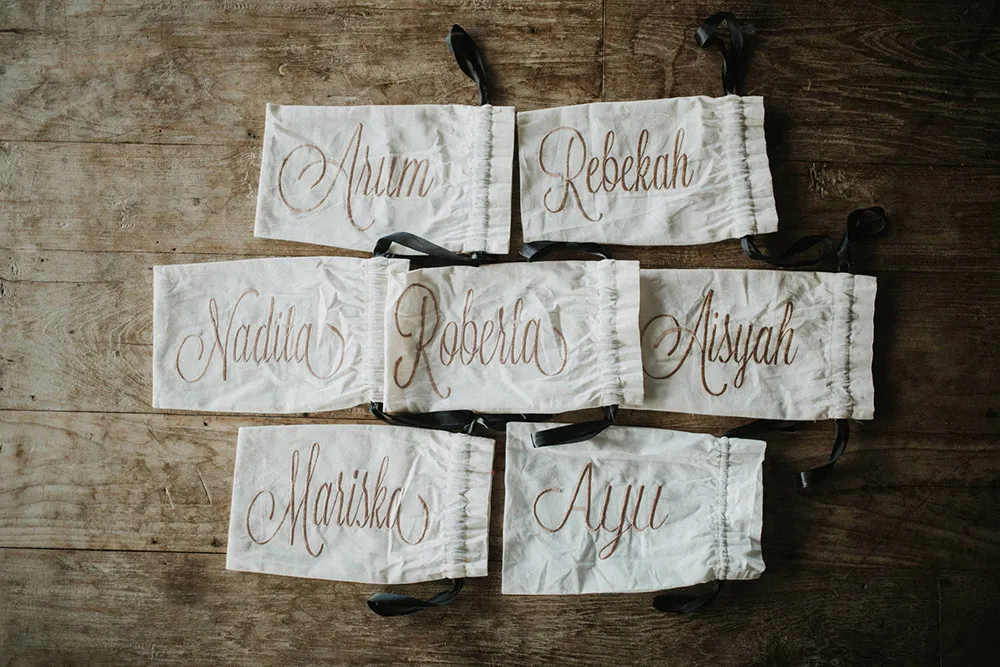 Arum
Rebekah
Nadita
Roberta
Aisyah
Mariska
Ayu